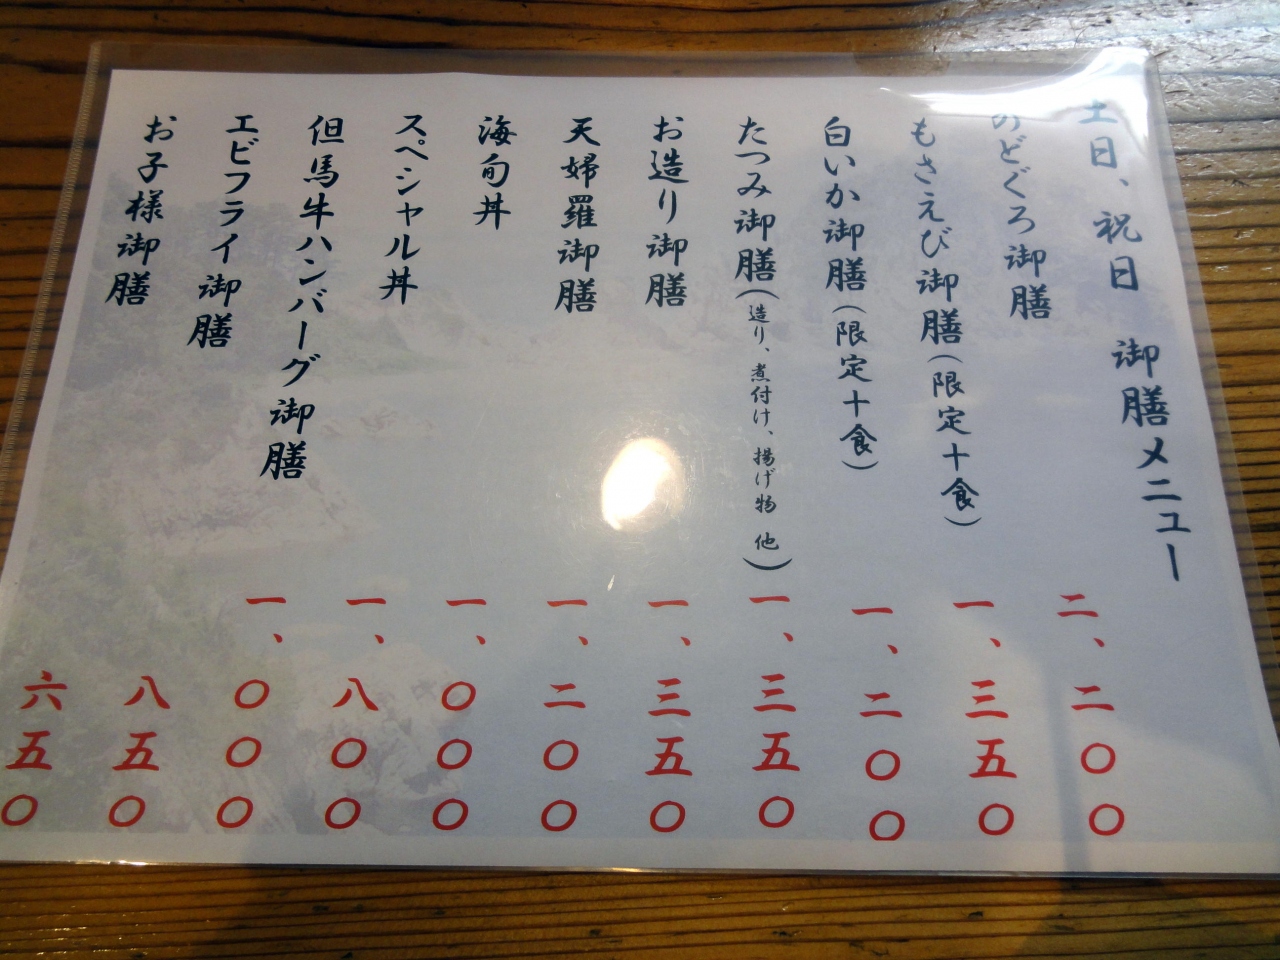 土日、祝日 御膳メニュー
のどぐろ御膳 二、二〇〇
もさえび御膳(限定十食) 一、三五〇
白いか御膳(限定十食) 一、二〇〇
たつみ御膳(造り、煮付け、揚げ物 他) 一、三五〇
お造り御膳 一、三五〇
天婦羅御膳 一、二〇〇
海旬丼 一、〇〇〇
スペシャル丼 一、八〇〇
但馬牛ハンバーグ御膳 一、〇〇〇
エビフライ御膳 八五〇
お子様御膳 六五〇